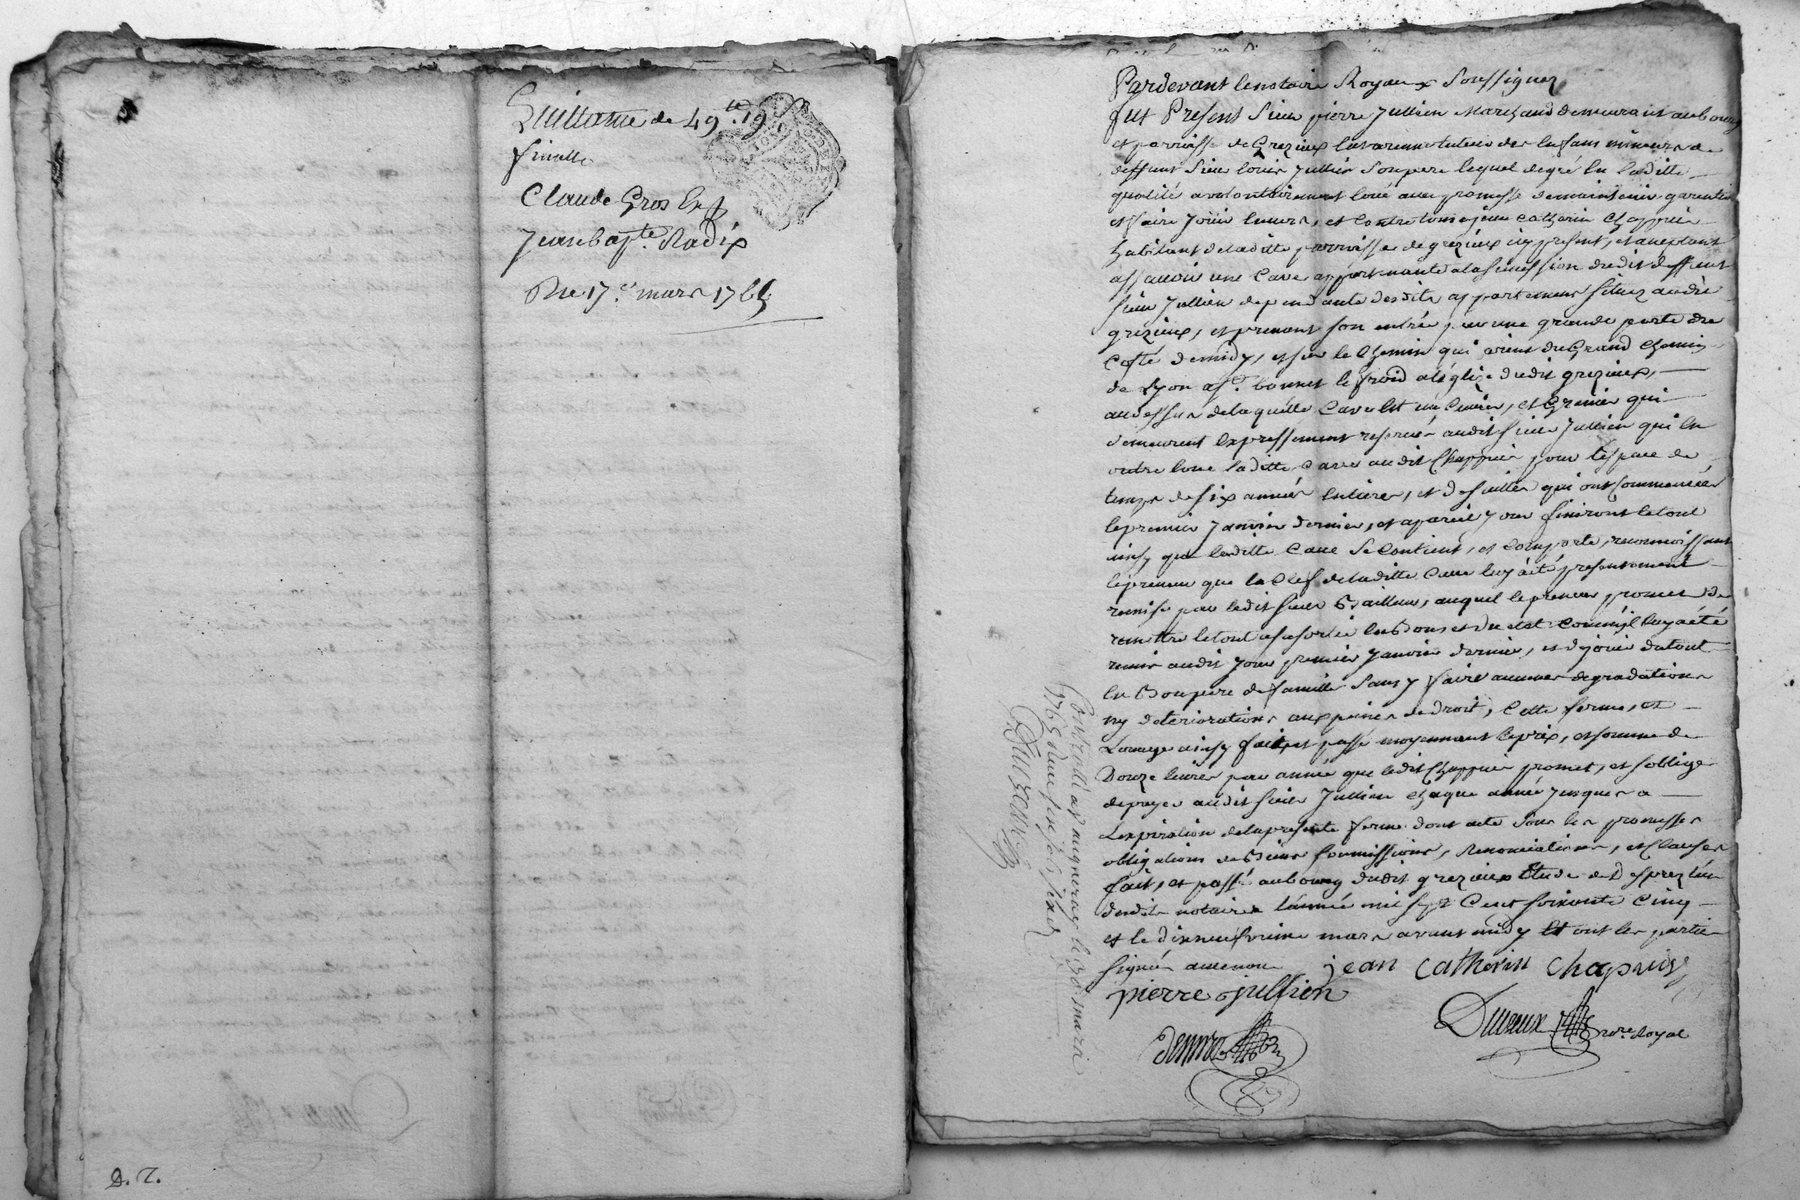 Quittance de 49.ᵗᵗ 19
Claude Gros Et
Jean bapᵗᵉ. Radix
Du 17.ᵉ mars 1765
D. T.
Pardevant le notaire Royaux Soussignez
fut Present Sieur pierre Jullien Marchand demeurant au bourg
et parroisse de Grezieux tuteur des Enfans mineurs de
deffunt Sieur louis Jullien Son pere lequel de gré En laditte
qualité a volontairement loué avec promesse de maintenir garentir
et faire Jouir Envers, et Contre tous a jean Catherin Chappuis
habitant de laditte parroisse de grezieux icy present, et acceptant
assavoir une Cave appartenante a la Succession dudit deffunt
Sieur Jullien dependante desdits appartemens Situez audit
grezieux, et prenant son entrée par une grande porte du
Costé de midy, et sur le Chemin qui vient du Grand Chemin
de Lyon a Sᵗ. bonnet le froid a l'église dudit grezieux,
audessus de laquelle Cave Est un Cuvier, et Grenier qui
demeurent Expressement reservés audit Sieur Jullien qui En
outre loue laditte Cave audit Chappuis pour l'Espace de
temps de six années Entieres, et de suittes qui ont Commencées
le premier Janvier dernier, et a pareil Jour finiront le tout
ainsy que laditte Cave Se Contient, et Comporte, reconnoissant
le preneur que la Clef de laditte Cave luy a été presentement
remise par ledit Sieur Bailleur, auquel le preneur promet de
remettre le tout a sa sortie En Bons et Du etat Comme il luy a été
remis audit Jour premier Janvier dernier, et d'jouir du tout
En Bon pere de famille Sans y faire aucunes degradations
ny deteriorations aux peines de Droit, Cette ferme, et
Louage ainsy fait et passé moyennant le prix, et somme de
Douze livres par année que ledit Chappuis promet, et s'oblige
de payer audit Sieur Jullien Chaque année Jusques a
L'expiration de la presente ferme dont acte Sous les promesses
obligations de Biens Soumissions, Renonciations, et Clauses
fait, et passé au bourg dudit grezieux Etude de Desprez l'un
desdits notaires l'année mil sept Cent soixante Cinq
et le dixneufvieme mars avant midy Et ont les parties
Signé avec nous jean Catherin Chapuis
pierre jullien
Duvaux noʳᵉ. Royal
Controllé a vaugneray le 30 mars
1765